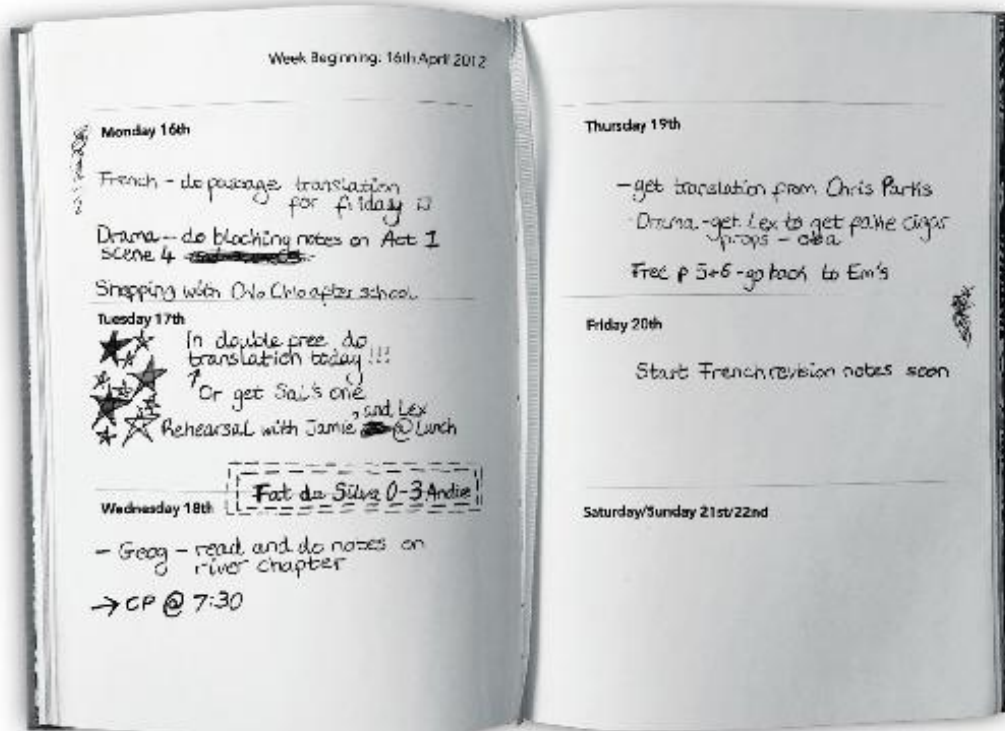 Week Beginning: 16th April 2012
Monday 16th
French - do passage translation
for friday
Drama - do blocking notes on Act 1
scene 4
Shopping with Chlo after school
Tuesday 17th
In double free do
translation today!!!
Or get Sal's one
and Lex
Rehearsal with Jamie @ Lunch
Fat da Silva 0-3 Andie
Wednesday 18th
- Geog - read and do notes on
river chapter
→ CP @ 7:30
Thursday 19th
- get translation from Chris Parks
- Drama - get Lex to get fake cigar
props -
Free p 5+6 - go back to Em's
Friday 20th
Start French revision notes soon
Saturday/Sunday 21st/22nd